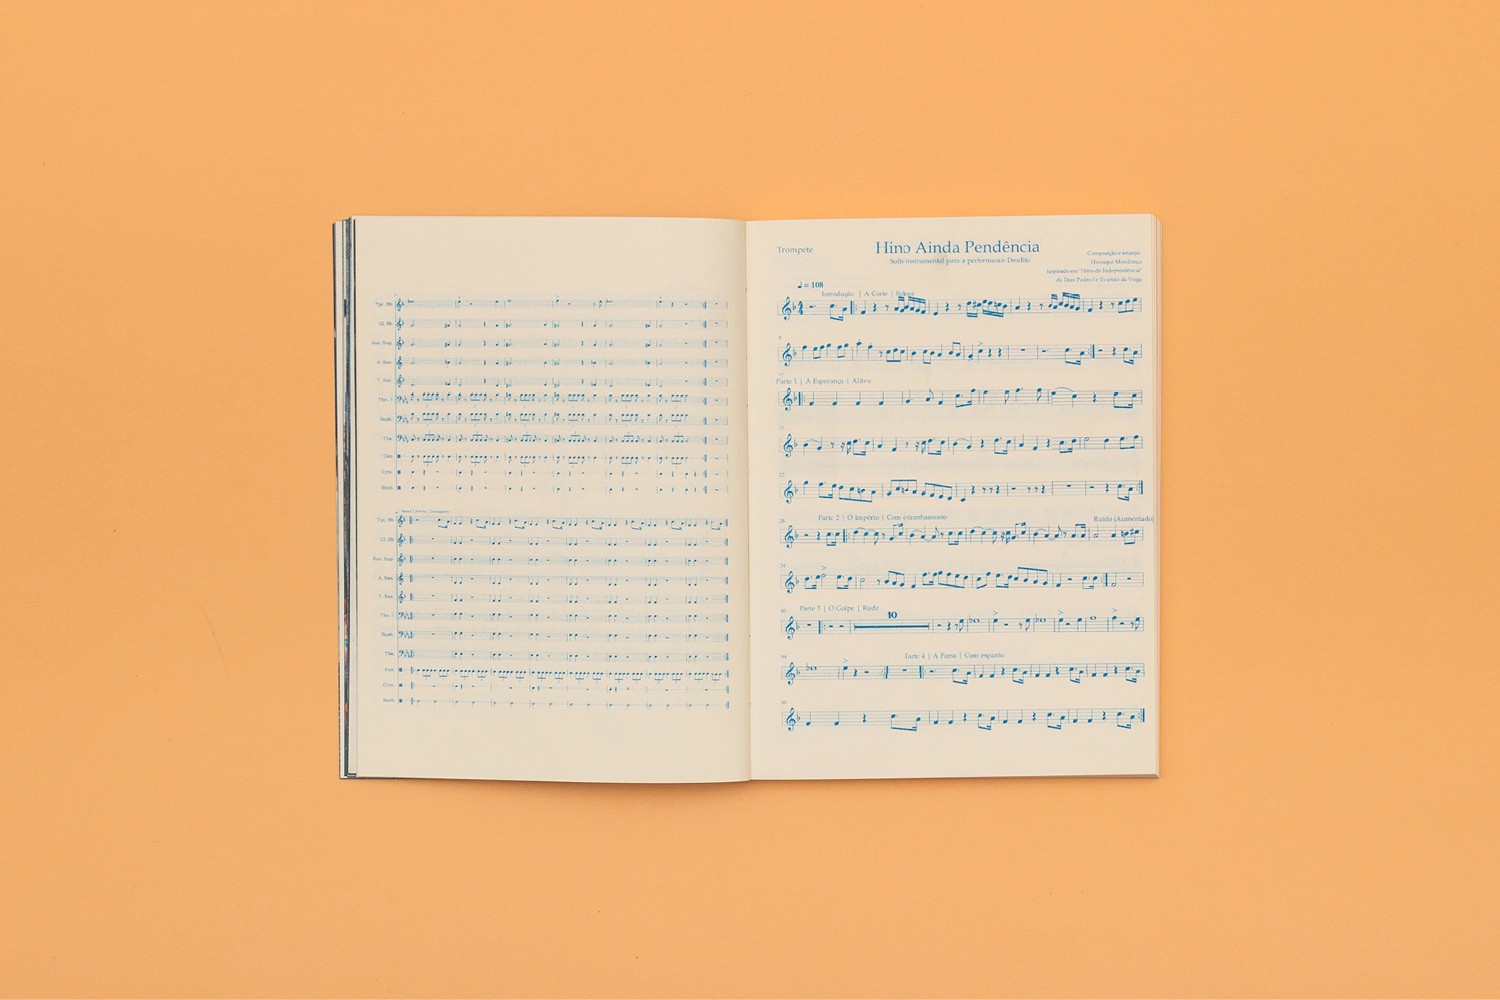 Tpt. Bb
Cl. Bb
Sax. Sop.
A. Sax.
T. Sax.
Tbn. 1
Euph.
Tba.
Cym.
Tpt. Bb
Cl. Bb
Sax. Sop.
A. Sax.
T. Sax.
Tbn. 1
Euph.
Tba.
Cym.
Trompete
Hino Ainda Pendência
Suíte instrumental para a performance Desfito
Composição e arranjo:
Henrique Mendonça
Inspirado em "Hino da Independência"
de Dom Pedro I e Evaristo da Veiga
♩ = 108
Introdução | A Corte | Solene
Parte 1 | A Esperança | Altivo
Parte 2 | O Império | Com estranhamento
Ruído (Aumentado)
Parte 3 | O Golpe | Rude
10
Parte 4 | A Farsa | Com espanto